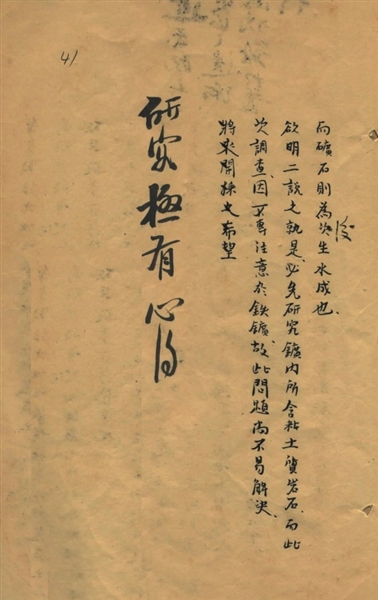 而礦石則為後次生水成也.
欲明二說之孰是.必先研究鑛內所含粘土質岩石.而此
次調查.因不專注意於鉄鑛.故此問題尚不易解決.
將來開採之希望
研究極有心得
41